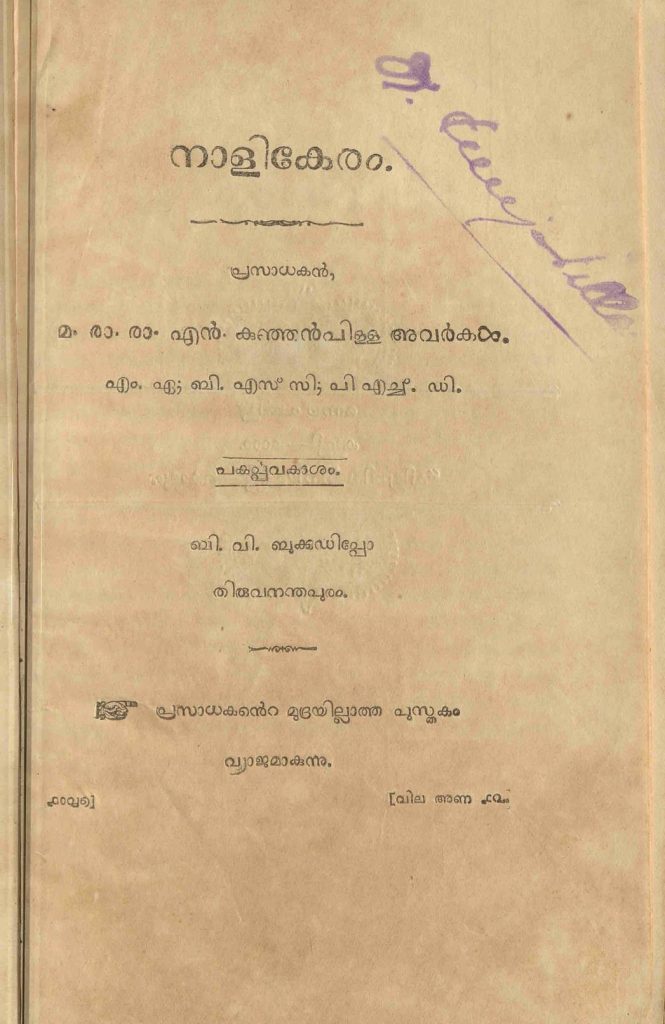 നാളികേരം.
പ്രസാധകൻ,
മ. രാ. രാ. എൻ. കുഞ്ഞൻപിള്ള അവർകൾ.
എം. ഏ; ബി. എസ് സി; പി എച്ച്. ഡി.
പകർപ്പവകാശം.
ബി. വി. ബുക്കുഡിപ്പോ
തിരുവനന്തപുരം.
പ്രസാധകൻെറ മുദ്രയില്ലാത്ത പുസ്തകം
വ്യാജമാകുന്നു.
[വില അണ